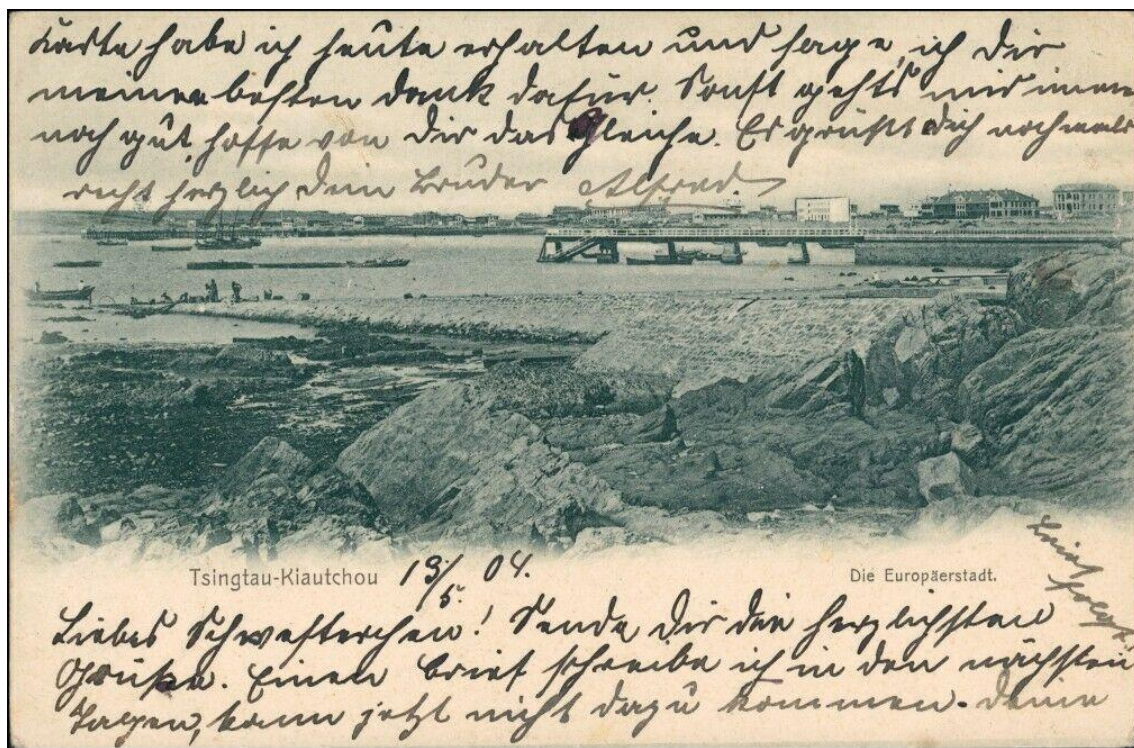 Karte habe ich heute erhalten und sage ich Dir
meinen besten Dank dafür. Sonst gehts mir immer
noch gut, hoffe von Dir das Gleiche. Es grüßt Dich nochmals
recht herzlich Dein Bruder Alfred.
Tsingtau-Kiautchou 19/5. 04.
Die Europäerstadt.
Brief folgt.
Liebes Schwesterchen! Sende Dir die herzlichsten
Grüße. Einen Brief schreibe ich in den nächsten
Tagen, kann jetzt nicht dazu kommen. Deine